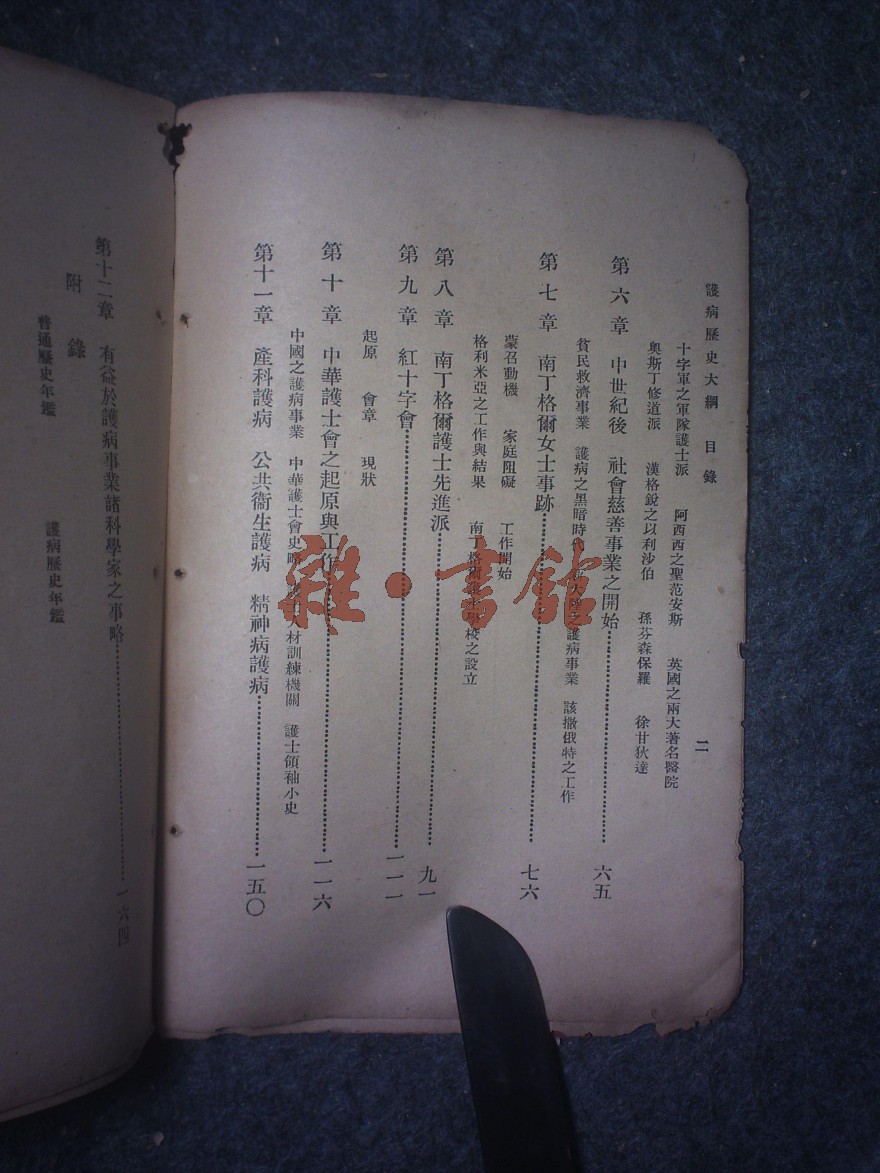 護病歷史大綱 目錄 二
十字軍之軍隊護士派 阿西西之聖范安斯 英國之兩大著名醫院
奧斯丁修道派 漢格銳之以利沙伯 孫芬森保羅 徐甘狄達
第六章 中世紀後 社會慈善事業之開始 六五
貧民救濟事業 護病之黑暗時代 護病事業 該撒俄特之工作
第七章 南丁格爾女士事跡 七六
蒙召動機 家庭阻礙 工作開始
格利米亞之工作與結果 南丁格爾 校之設立
第八章 南丁格爾護士先進派 九一
第九章 紅十字會 一一一
起原 會章 現狀
第十章 中華護士會之起原與工作 一一六
中國之護病事業 中華護士會史略 材訓練機關 護士領袖小史
第十一章 產科護病 公共衞生護病 精神病護病 一五〇
第十二章 有益於護病事業諸科學家之事略 一六四
附錄
普通歷史年鑑 護病歷史年鑑
雜·書館